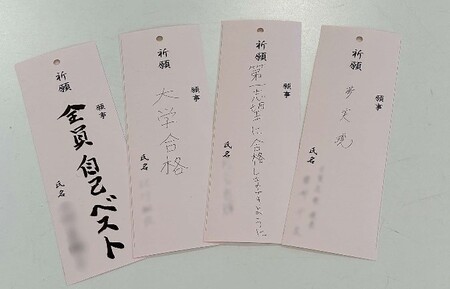 祈願
願事
全員 自己ベスト
氏名
祈願
願事
大学合格
氏名
祈願
願事
第一志望に合格しますように
氏名
祈願
願事
夢実現
氏名